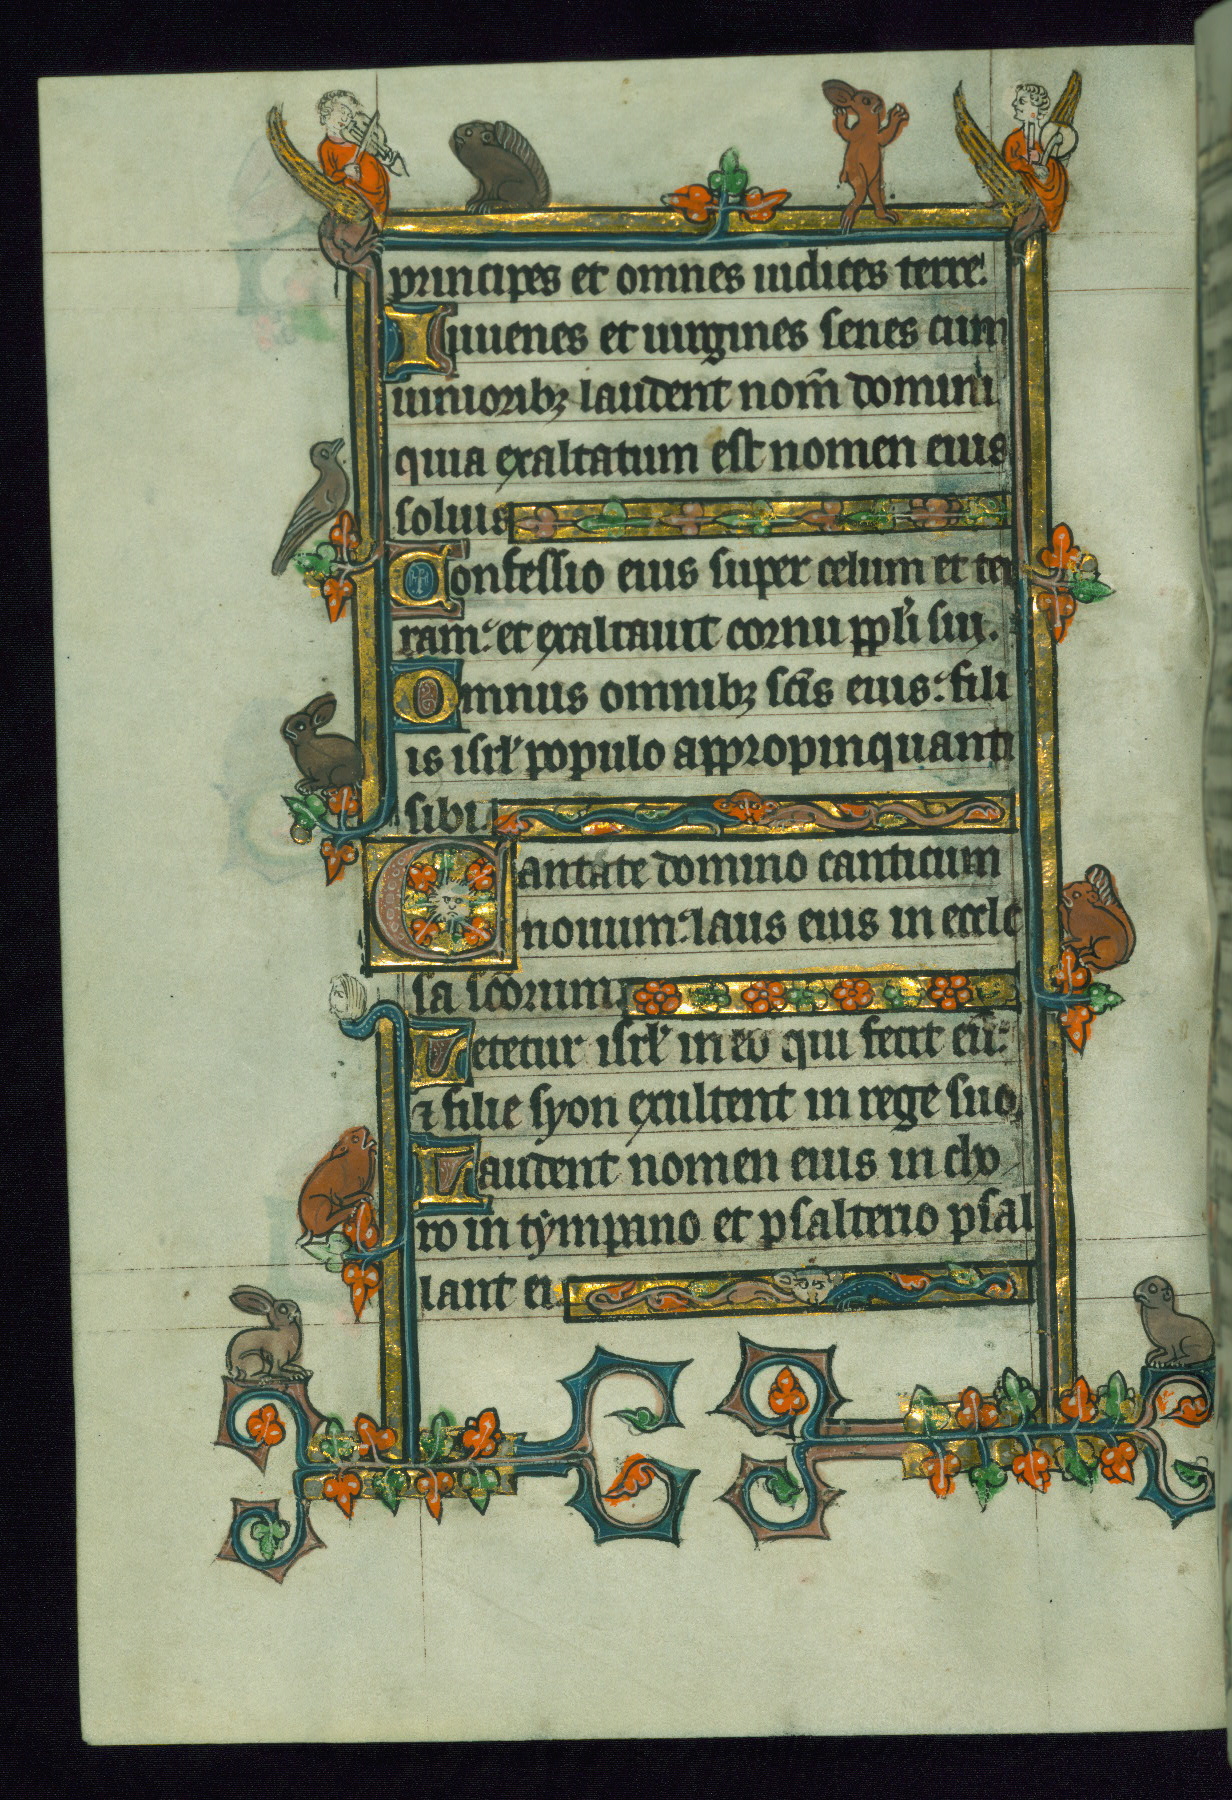 principes et omnes iudices terre.
Iuuenes et uirgines senes cum
iunioribꝫ laudent nom̄ domini
quia exaltatum est nomen eius
solius
Confessio eius super celum et ter
ram: et exaltauit cornu ppl̓i sui.
Omnus omnibꝫ sc̄is eius: fili
is isrl̓ populo appropinquanti
sibi.
Cantate domino canticum
nouum: laus eius in eccle
sia sc̄orum.
Letetur isrl̓ in eo qui fecit eū:
⁊ filie syon exultent in rege suo.
Laudent nomen eius in cho
ro in tympano et psalterio psal
lant ei.